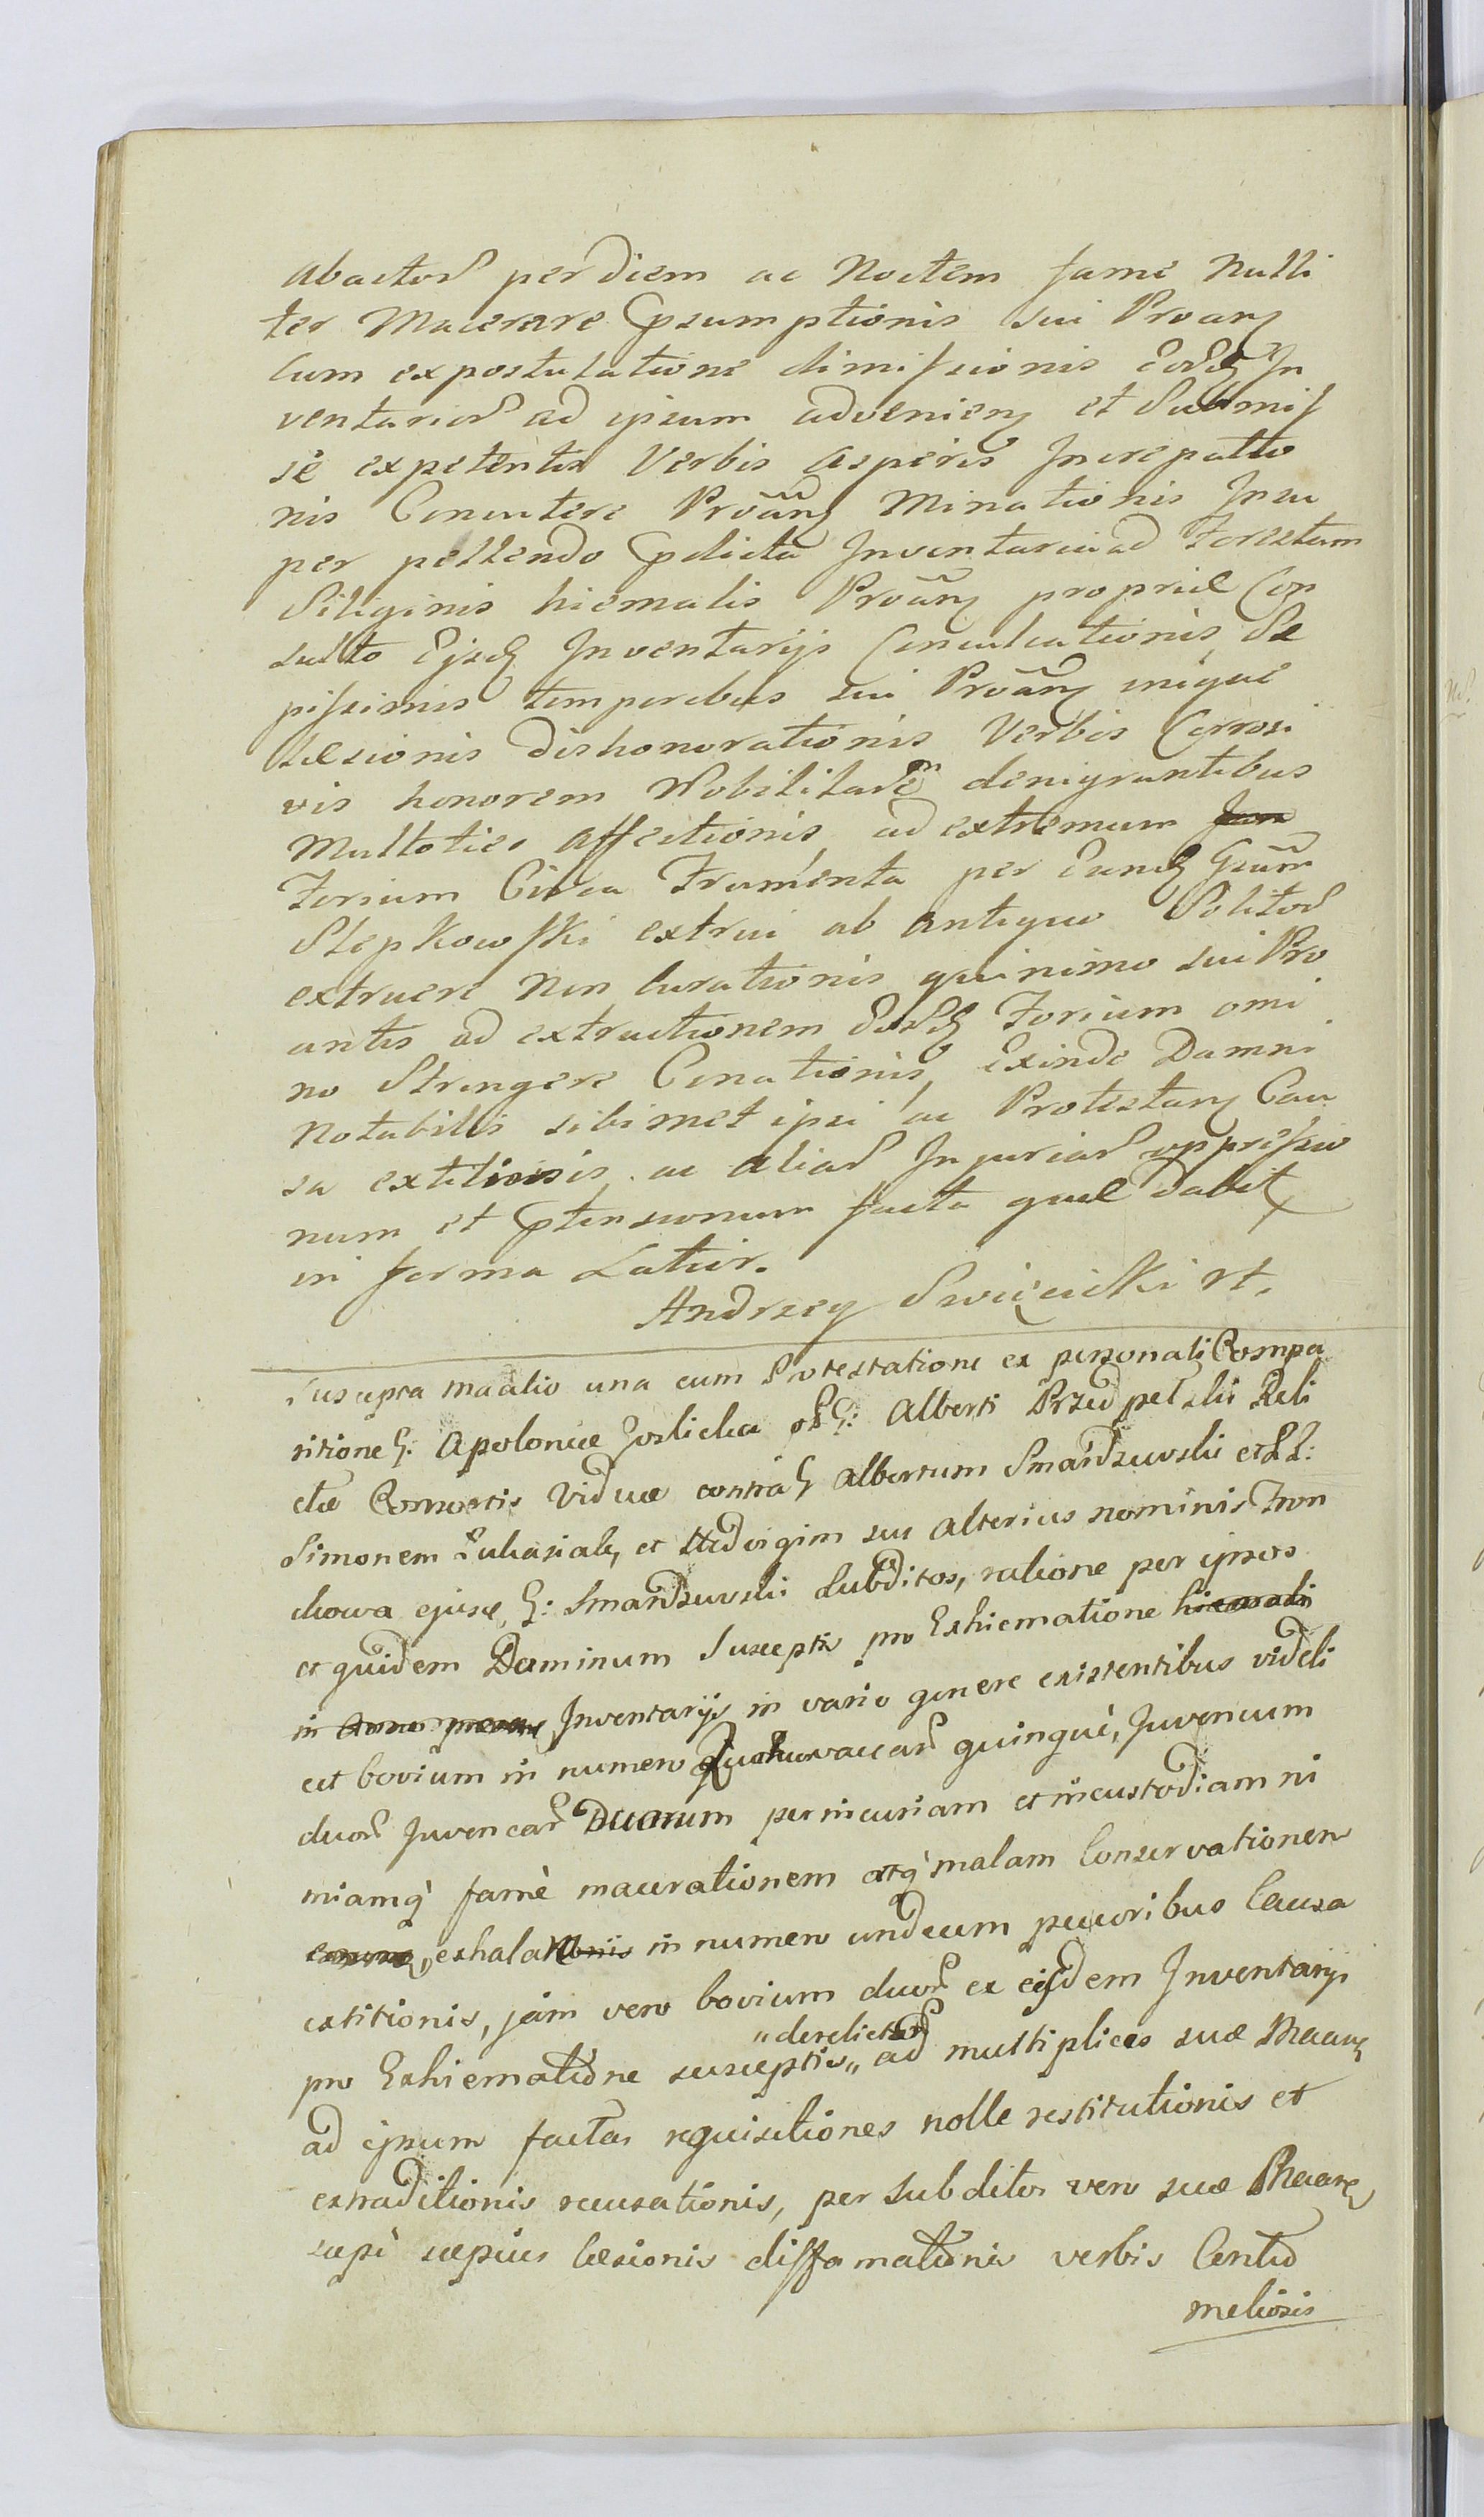 abactor per diem ac Noctem fame Nulli
ter Macerare psumptionis sui Proan
cum expostulatione dimissionis eord In
ventarior ad ipsum advenien et Submis
se expetentis Verbis asperis Increpatio
nis Concutere Proan Minationis Insu
per pellendo pdicta Inventaria ad Forestam
Siliginis hiemalis Proan propriae Con
sulto Ejsd Inventarijs Conculcationis, Sae
pissimis temporibus sui Proan inique
Laesionis dishonorationis Verbis Corrosi
vis honorem Nobilitarem denigrantibus
Multoties affectionis, ad extremum
Forium Circa Frumenta per Eund Gsum
Slepkowski extrui ab antiquo Solitor
extruere Non Curationis quinimo sui Pro
antis ad extructionem Eord Forium omi
no Stringere Conationis, exinde Damni
Notabilis sibimet ipsi ac Protestan Cau
sa extitionis. ac aliar Injuriar oppressio
num et ptensionum facta quae dabit
in forma Latior.
Andrzey Swięcicki
Suscepta maatio una cum Protestatione ex personali Compa
ritione G. Apoloniae Joslicka G: Alberti Przedpelski Reli
ctae Consortis Viduae contra G Albertum Smardzewski et LL:
Simonem Lukasiak, et Hedvigim seu alterius nominis Fron
ckowa ejusd G: Smardzewski Subditos, ratione per ipsos
et quidem Dominum Susceptis pro Exhiematione hiemali
in Inventarijs in vario genere existentibus videli
cet bovium in numero vaccar quinque, Juvencum
duor Juvencar Duarum per incuriam et incustodiam ni
miamq fame macerationem atq malam Conservationem
exhala in numero undecim pecoribus Causa
extitionis, jam vero bovium duor ex eisdem Inventarijs
"derelictor
pro Exhiematione susceptis" ad multiplices suae Maan
ad ipsum factas requisitiones nolle restitutionis et
extraditionis recusationis, per Subditos vero suae Maan
saepe saepius laesionis diffamationis verbis Contu
meliosis